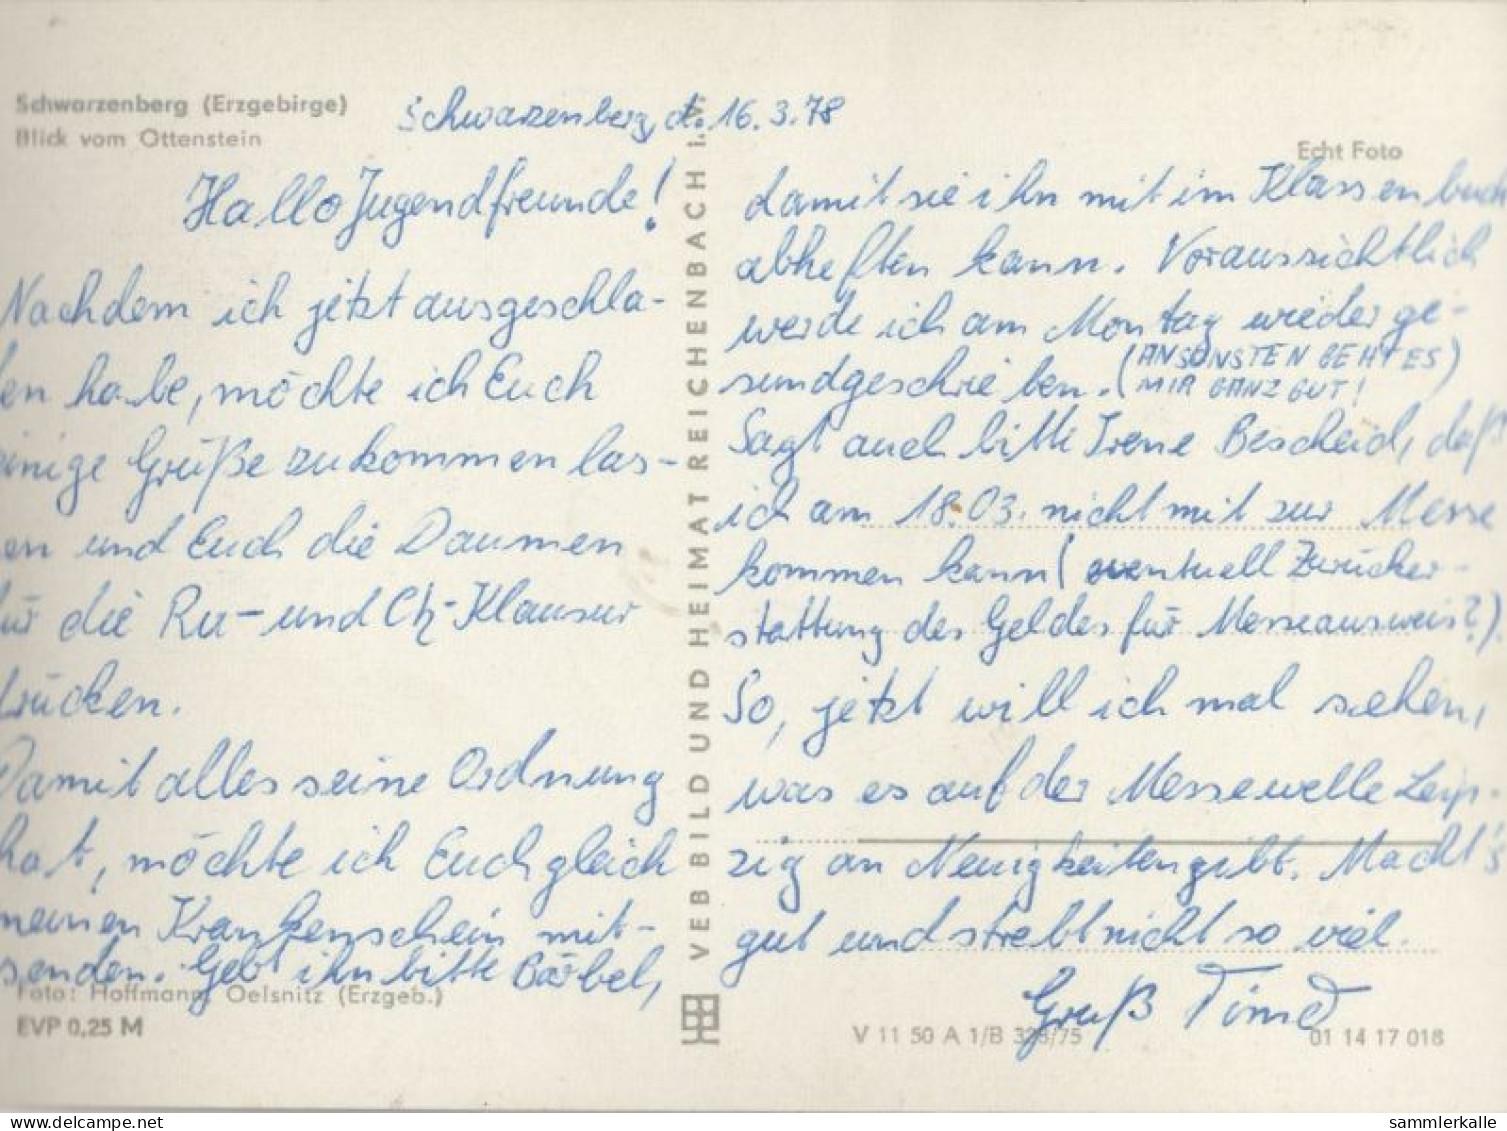 Schwarzenberg (Erzgebirge)
Blick vom Ottenstein
Schwarzenberg, d. 16.3.78
Hallo Jugendfreunde!
Nachdem ich jetzt ausgeschla-
fen habe, möchte ich Euch
einige Grüße zukommen las-
en und Euch die Daumen
für die Ru- und Ch-Klausur
drücken.
Damit alles seine Ordnung
hat, möchte ich Euch gleich
meinen Krankenschein mit-
senden. Gebt ihn bitte Bärbel,
Foto: Hoffmann, Oelsnitz (Erzgeb.)
EVP 0,25 M
VEB BILD UND HEIMAT REICHENBACH i. V.
Echt Foto
damit sie ihn mit im Klassenbuch
abheften kann. Voraussichtlich
werde ich am Montag wieder ge-
sundgeschrieben. (ANSONSTEN GEHT ES
MIR GANZ GUT!)
Sagt auch bitte Irene Bescheid, daß
ich am 18.03. nicht mit zur Messe
kommen kann (eventuell Zurücker-
stattung des Geldes für Messeausweis?).
So, jetzt will ich mal sehen,
was es auf der Messewelle Leip-
zig an Neuigkeiten gibt. Macht's
gut und strebt nicht so viel.
Gruß
V 11 50 A 1/B 328/75
01 14 17 018
delcampe.net
sammlerkalle